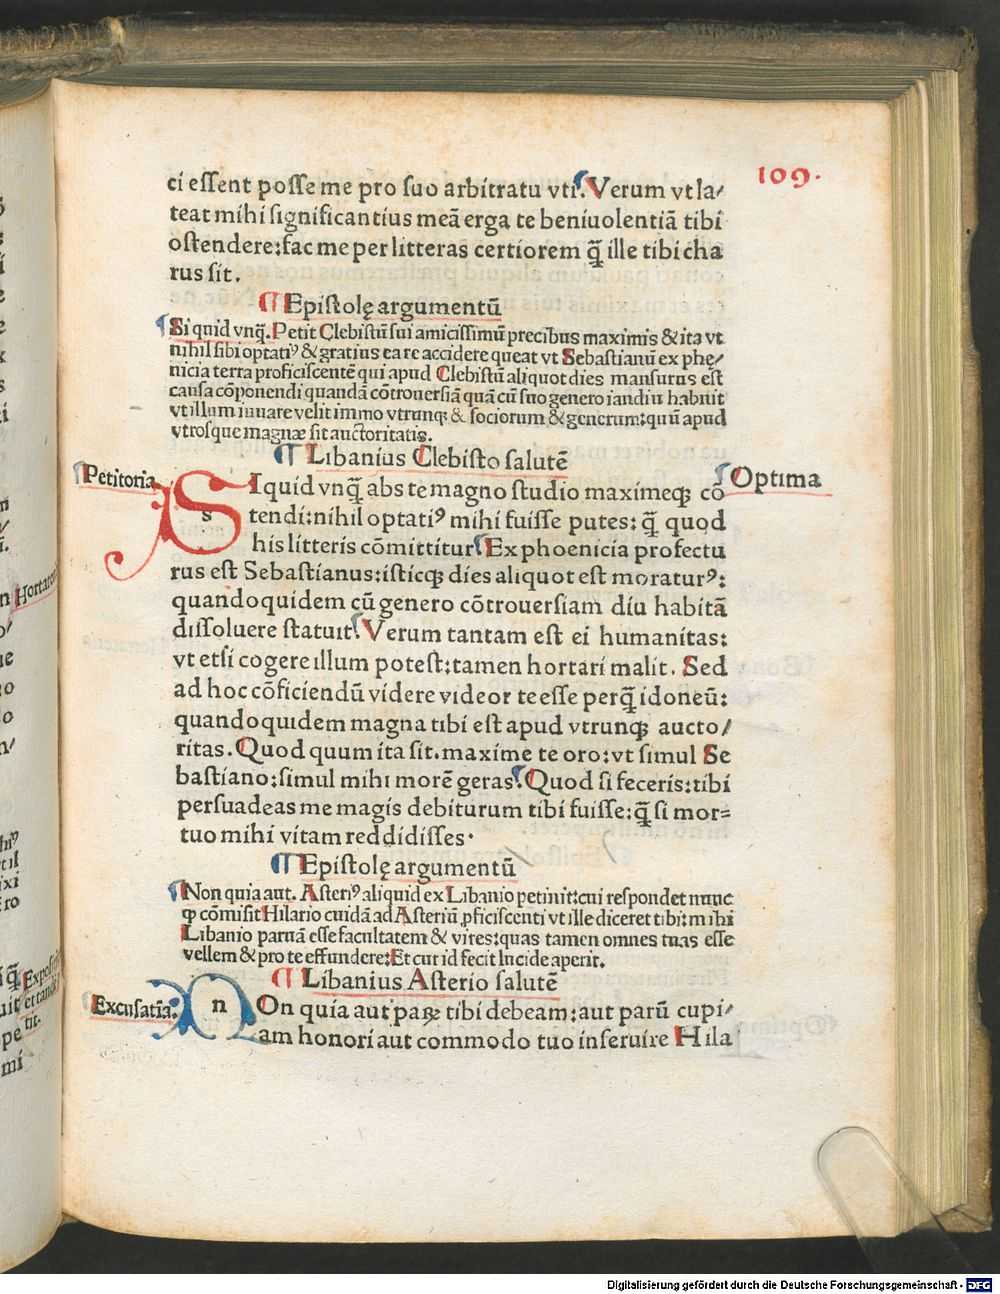 109.
ci essent posse me pro suo arbitratu vti. Verum vt la/
teat mihi significantius meā erga te beniuolentiā tibi
ostendere: fac me per litteras certiorem q̄ ille tibi cha
rus sit.
¶ Epistolę argumentū
Si quid vnq̄. Petit Clebistū sui amicissimū precibus maximis & ita vt
nihil sibi optatiꝰ & gratius ea re accidere queat vt Sebastianū ex phę/
nicia terra proficiscentē qui apud Clebistū aliquot dies mansurus est
causa cōponendi quandā cōtrouersiā quā cū suo genero iandiu habuit
vt illum iuuare velit immo vtrunqꝫ & sociorum & generum: quū apud
vtrosque magnæ sit auctoritatis.
¶ Libanius Clebisto salutē
Petitoria
Optima
SIquid vnq̄ abs te magno studio maximeqꝫ cō
tendi: nihil optatiꝰ mihi fuisse putes: q̄ quod
his litteris cōmittitur. Ex phoenicia profectu
rus est Sebastianus: isticqꝫ dies aliquot est moraturꝰ:
quandoquidem cū genero cōtrouersiam diu habitā
dissoluere statuit. Verum tantam est ei humanitas:
vt etsi cogere illum potest: tamen hortari malit. Sed
ad hoc cōficiendū videre videor te esse perq̄ idoneū:
quandoquidem magna tibi est apud vtrunqꝫ aucto/
ritas. Quod quum ita sit. maxime te oro: vt simul Se
bastiano: simul mihi morē geras. Quod si feceris: tibi
persuadeas me magis debiturum tibi fuisse: q̄ si mor=
tuo mihi vitam reddidisses.
¶ Epistolę argumentū
Non quia aut. Asteriꝰ aliquid ex Libanio petinit: cui respondet nunc
ꝙ cōmisit Hilario cuidā ad Asteriū ꝓficiscenti vt ille diceret tibi: mihi
Libanio paruā esse facultatem & vires: quas tamen omnes tuas esse
vellem & pro te effundere: Et cur id fecit lucide aperit.
¶ Libanius Asterio salutē
Excusatīa:
NOn quia aut paꝝ tibi debeam: aut parū cupi/
am honori aut commodo tuo inseruire Hila
Hortator
Digitalisierung gefördert durch die Deutsche Forschungsgemeinschaft - DFG